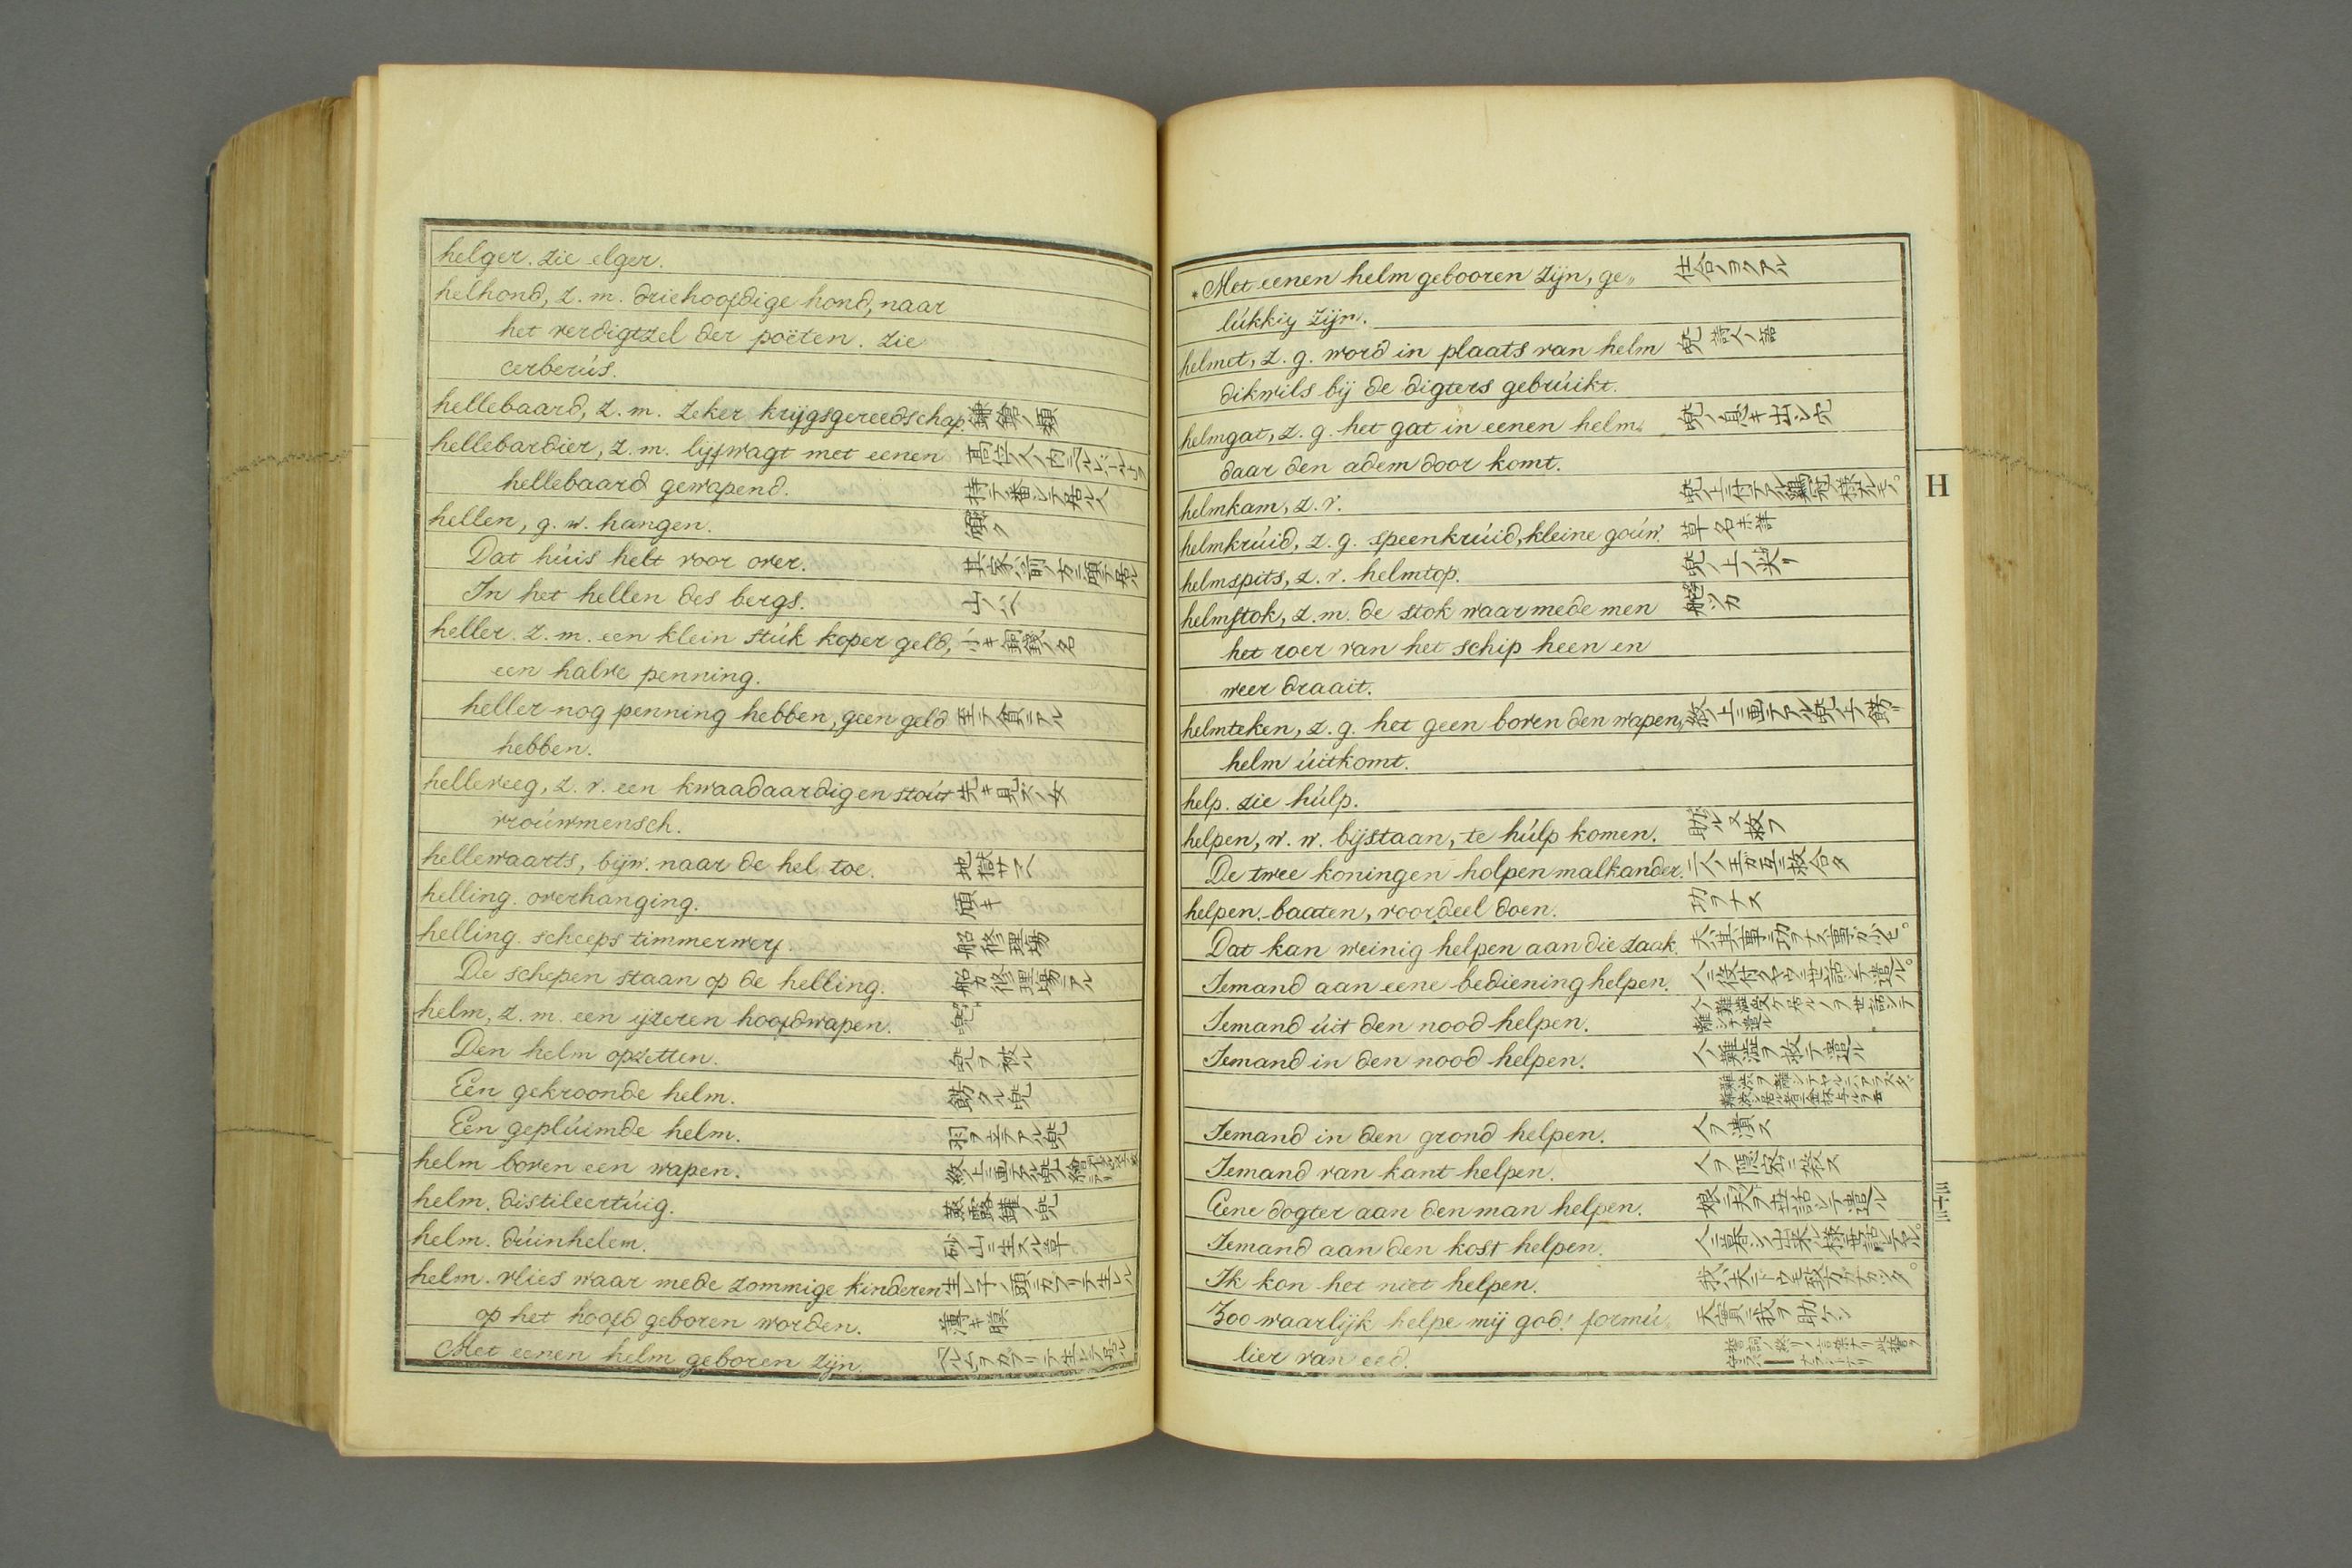 helger. zie elger.
helhond, z. m. driehoofdige hond, naar
het verdigtzel der poëten. zie
cerberús.
hellebaard, z. m. zeker krijgsgereedschap. 鎌鎗ノ類
hellebardier, z. m. lijfwagt met eenen
hellebaard gewapend. 持テ番シテ居ル人
hellen, g. w. hangen. 傾ク
Dat húis helt voor over. 其家ハ前ノ方ニ傾テ居ル
In het hellen des bergs.
heller. z. m. een klein stúk koper geld, 小キ銅錢ノ名
een halve penning.
heller nog penning hebben, geen geld 至テ貧ニテアル
hebben.
helleveeg, z. v. een kwaadaardigen stoút
vroúwmensch.
hellewaarts, bijw. naar de hel toe. 地獄サマヘ
helling. overhanging. 傾キ
helling. scheeps timmerwerf. 船修理場
De schepen staan op de helling. 船ガ修理場ニアル
helm, z. m. een ijzeren hoofdwapen. 兜
Den helm opzetten. 兜ヲ被ル
Een gekroonde helm. 餝タル兜
Een geplúimde helm. 羽ヲ立テアル兜
helm boven een wapen.
helm. distileertúig. 蒸露鑵ノ兜
helm. dúinhelem. 砂山ニ生スル草
helm. vlies waar mede zommige kinderen 生レ子ノ頭ニカブリテ生レル
op het hoofd geboren worden. 薄キ膜
Met eenen helm geboren zijn. ヘルムヲカブリテ生レテ居ル
Met eenen helm gebooren zijn, ge〃 仕合ノヨクアル
lúkkig zijn.
helmet, z. g. word in plaats van helm 兜 詩人ノ語
dikwils bij de digters gebrúikt.
helmgat, z. g. het gat in eenen helm, 兜ノ息キ出シ穴
daar den adem door komt.
helmkam, z. v. 兜ノ上ニ付テアル鷄冠ノ様ナルモノ。
helmkrúid, z. g. speenkrúid, kleine goúw. 草名未詳
helmspits, z. v. helmtop. 兜ノ上ノ尖リ
helmstok, z. m. de stok waar mede men
het roer van het schip heen en
weer draait.
helmteken, z. g. het geen boven den wapen, 紋ノ上ニ画テアル兜ノ上ノ餝
helm úitkomt.
help. zie húlp.
helpen, w. w. bijstaan, te húlp komen. 助ル又救フ
De twee koningen holpen malkander. 二人ノ王ガ互ニ救合タ
helpen. baaten, voordeel doen. 功ヲナス
Dat kan weinig helpen aan die zaak. 夫ハ其事ニ功ヲナス事ガ少ヒ。
Iemand aan eene bediening helpen. 人ニ役付クヤウニ世話シテ遣ル。
Iemand úit den nood helpen.
Iemand in den nood helpen. 人ノ難澁ヲ救テ遣ル
Iemand in den grond helpen. 人ヲ潰ス
Iemand van kant helpen. 人ヲ隱密ニ殺ス
Eene dogter aan den man helpen. 娘ニ夫ヲ世話シテ遣ル
Iemand aan den kost helpen.
Ik kon het niet helpen.
Zoo waarlijk helpe mij god! formú〃 天實ニ我ヲ助ケン
lier van eed.
H
三十三